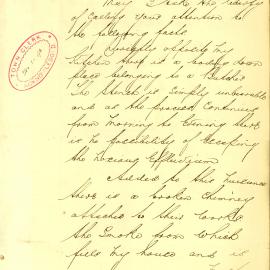 May I take the liberty
of calling your attention to
the following facts
Directly opposite my
Kitchen there is a boiling down
place belonging to a Butcher
The stench is simply unbearable
and as the process continues
from morning to Evening there
is no possibility of escaping
the noxious Effluvium
Added to this nuisance
there is a broken chimney
attached to these works
the smoke from which
fills my house and is
TOWN CLERK